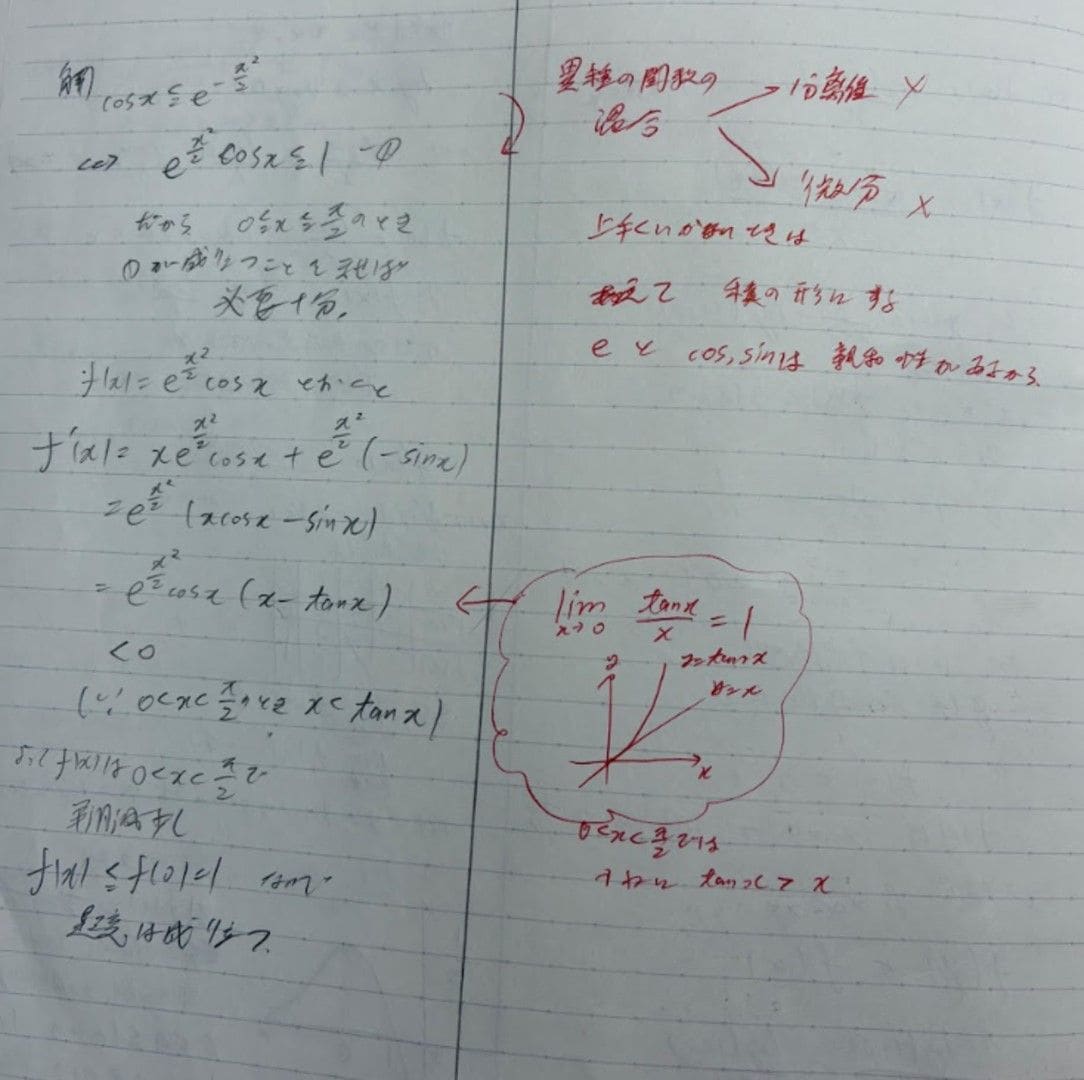 解) cosx ≦ e^{-x²/2}
⇔ e^{x²/2} cosx ≦ 1 -①
だから 0≦x≦π/2 のとき
①が成り立つことを示せば
必要十分。
f(x) = e^{x²/2} cosx とおくと
f'(x) = xe^{x²/2} cosx + e^{x²/2} (-sinx)
= e^{x²/2} (xcosx - sinx)
= e^{x²/2} cosx (x - tanx)
< 0
(∵ 0<x<π/2 のとき x < tanx)
よってf(x)は 0<x<π/2 で
単調減少し
f(x) ≦ f(0) = 1 なので
題意は成り立つ
異種の関数の
混合
分離 ×
微分 ×
上手くいかないときは
あえて 積の形にする
e と cos, sinは 親和性があるから
lim_{x→0} tanx/x = 1
y
y=tanx
y=x
x
0<x<π/2 では
つねに tanx > x